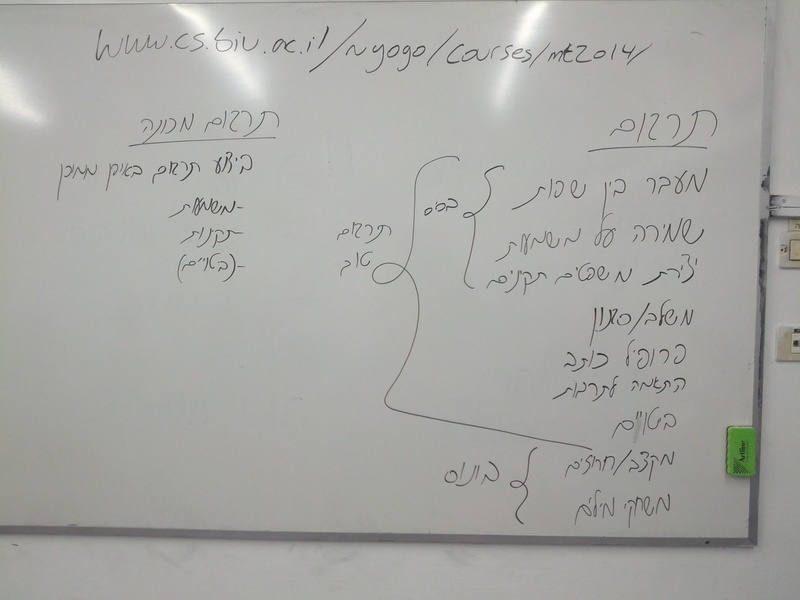 www.cs.biu.ac.il/~yogo/courses/mt2014/
תרגום
מעבר בין שפות
שמירה על משמעות
יצירת משפטים תקינים
בסיס
משלב/סגנון
פרופיל כותב
התאמה לתרבות
ביטויים
מקצב/חריזים
משחקי מילים
בונוס
תרגום
טוב
תרגום מכונה
ביצוע תרגום באופן ממוכן
-משמעות
-תקינות
-(ביטויים)
Artline